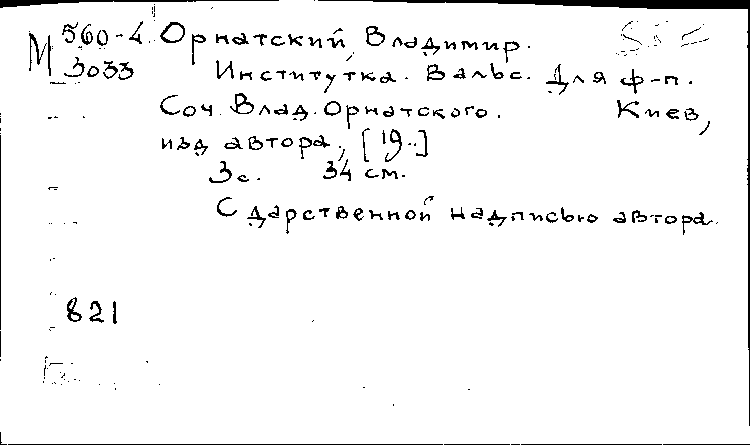 М 560-4 Орнатский, Владимир.
3033 Институтка. Вальс. Для ф-п.
Соч. Влад. Орнатского. Киев,
изд автора, [19..]
3с. 34 см.
С дарственной надписью автора.
821